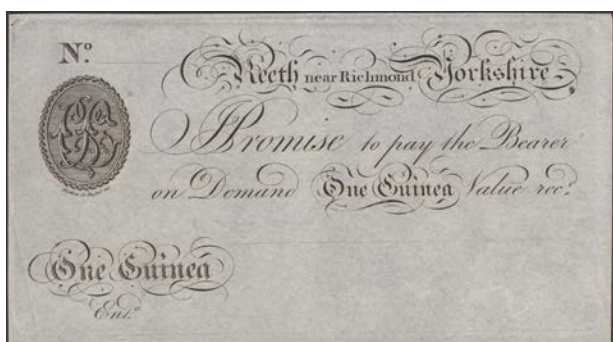 Nº
Reeth near Richmond Yorkshire
I Promise to pay the Bearer
on Demand One Guinea Value recd.
One Guinea
Entd.